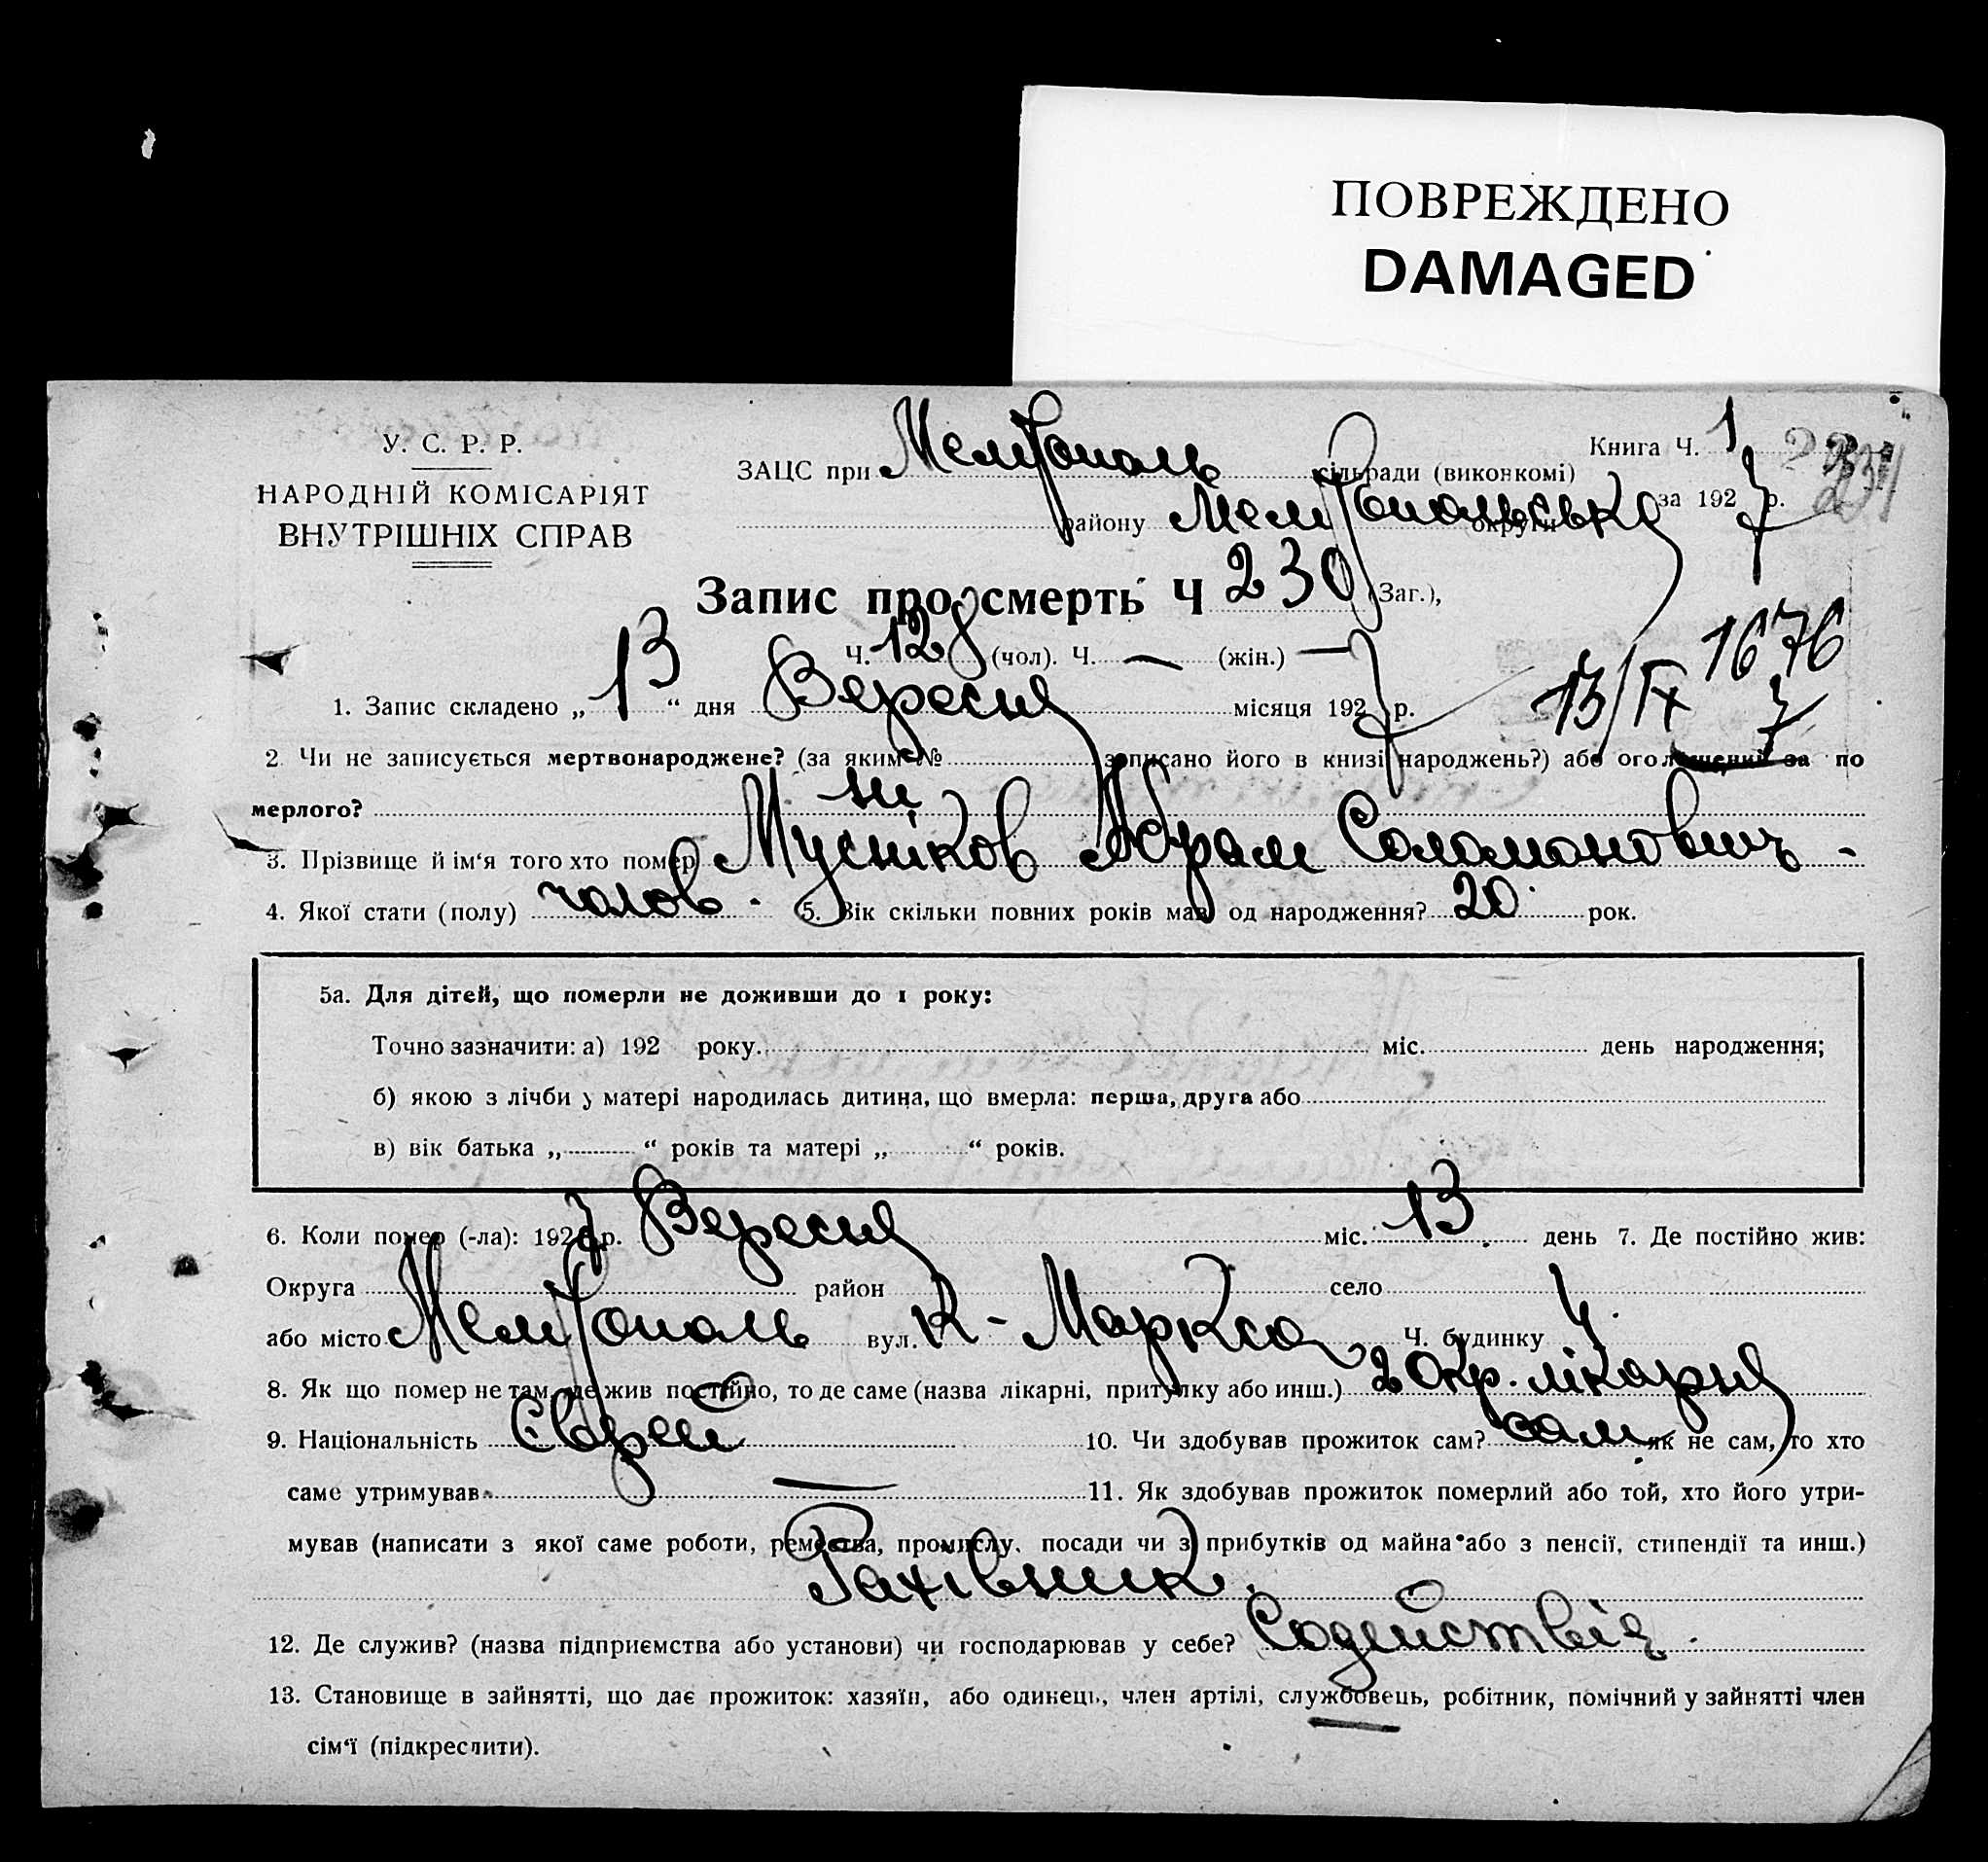 ПОВРЕЖДЕНО
DAMAGED
У. С. Р. Р.
НАРОДНІЙ КОМІСАРІЯТ
ВНУТРІШНІХ СПРАВ
ЗАЦС при Мелітополь сільради (виконкомі)
Книга Ч. 1
району Мелітопольсько округи за 1927 р.
231
Запис про смерть Ч 230 (Заг.),
Ч. 128 (чол). Ч. — (жін.) —
1676
13/IX 7
1. Запис складено „13“ дня Вересня місяця 1927 р.
2. Чи не записується мертвонароджене? (за яким № записано його в книзі народжень?) або оголошений за по
мерлого? ні
3. Прізвище й ім‘я того хто помер Мусніков Абрам Соломонович -
4. Якої стати (полу) чолов. 5. Вік скільки повних років мав од народження? 20 рок.
5а. Для дітей, що померли не доживши до 1 року:
Точно зазначити: а) 192 року. міс. день народження;
б) якою з лічби у матері народилась дитина, що вмерла: перша, друга або
в) вік батька „ “ років та матері „ “ років.
6. Коли помер (-ла): 1927 р. Вересня міс. 13 день 7. Де постійно жив:
Округа район село
або місто Мелітополь вул. К - Маркса Ч. будинку 4.
8. Як що помер не там, де жив постійно, то де саме (назва лікарні, притулку або инш.) 2 Окр. лікарня
9. Національність Єврей 10. Чи здобував прожиток сам? сам як не сам, то хто
саме утримував — 11. Як здобував прожиток померлий або той, хто його утри-
мував (написати з якої саме роботи, ремества, промислу, посади чи з прибутків од майна або з пенсії, стипендії та инш.)
Рахівник.
12. Де служив? (назва підприємства або установи) чи господарював у себе? Содействія.
13. Становище в зайнятті, що дає прожиток: хазяїн, або одинець, член артілі, службовець, робітник, помічний у зайнятті член
сім‘ї (підкреслити).